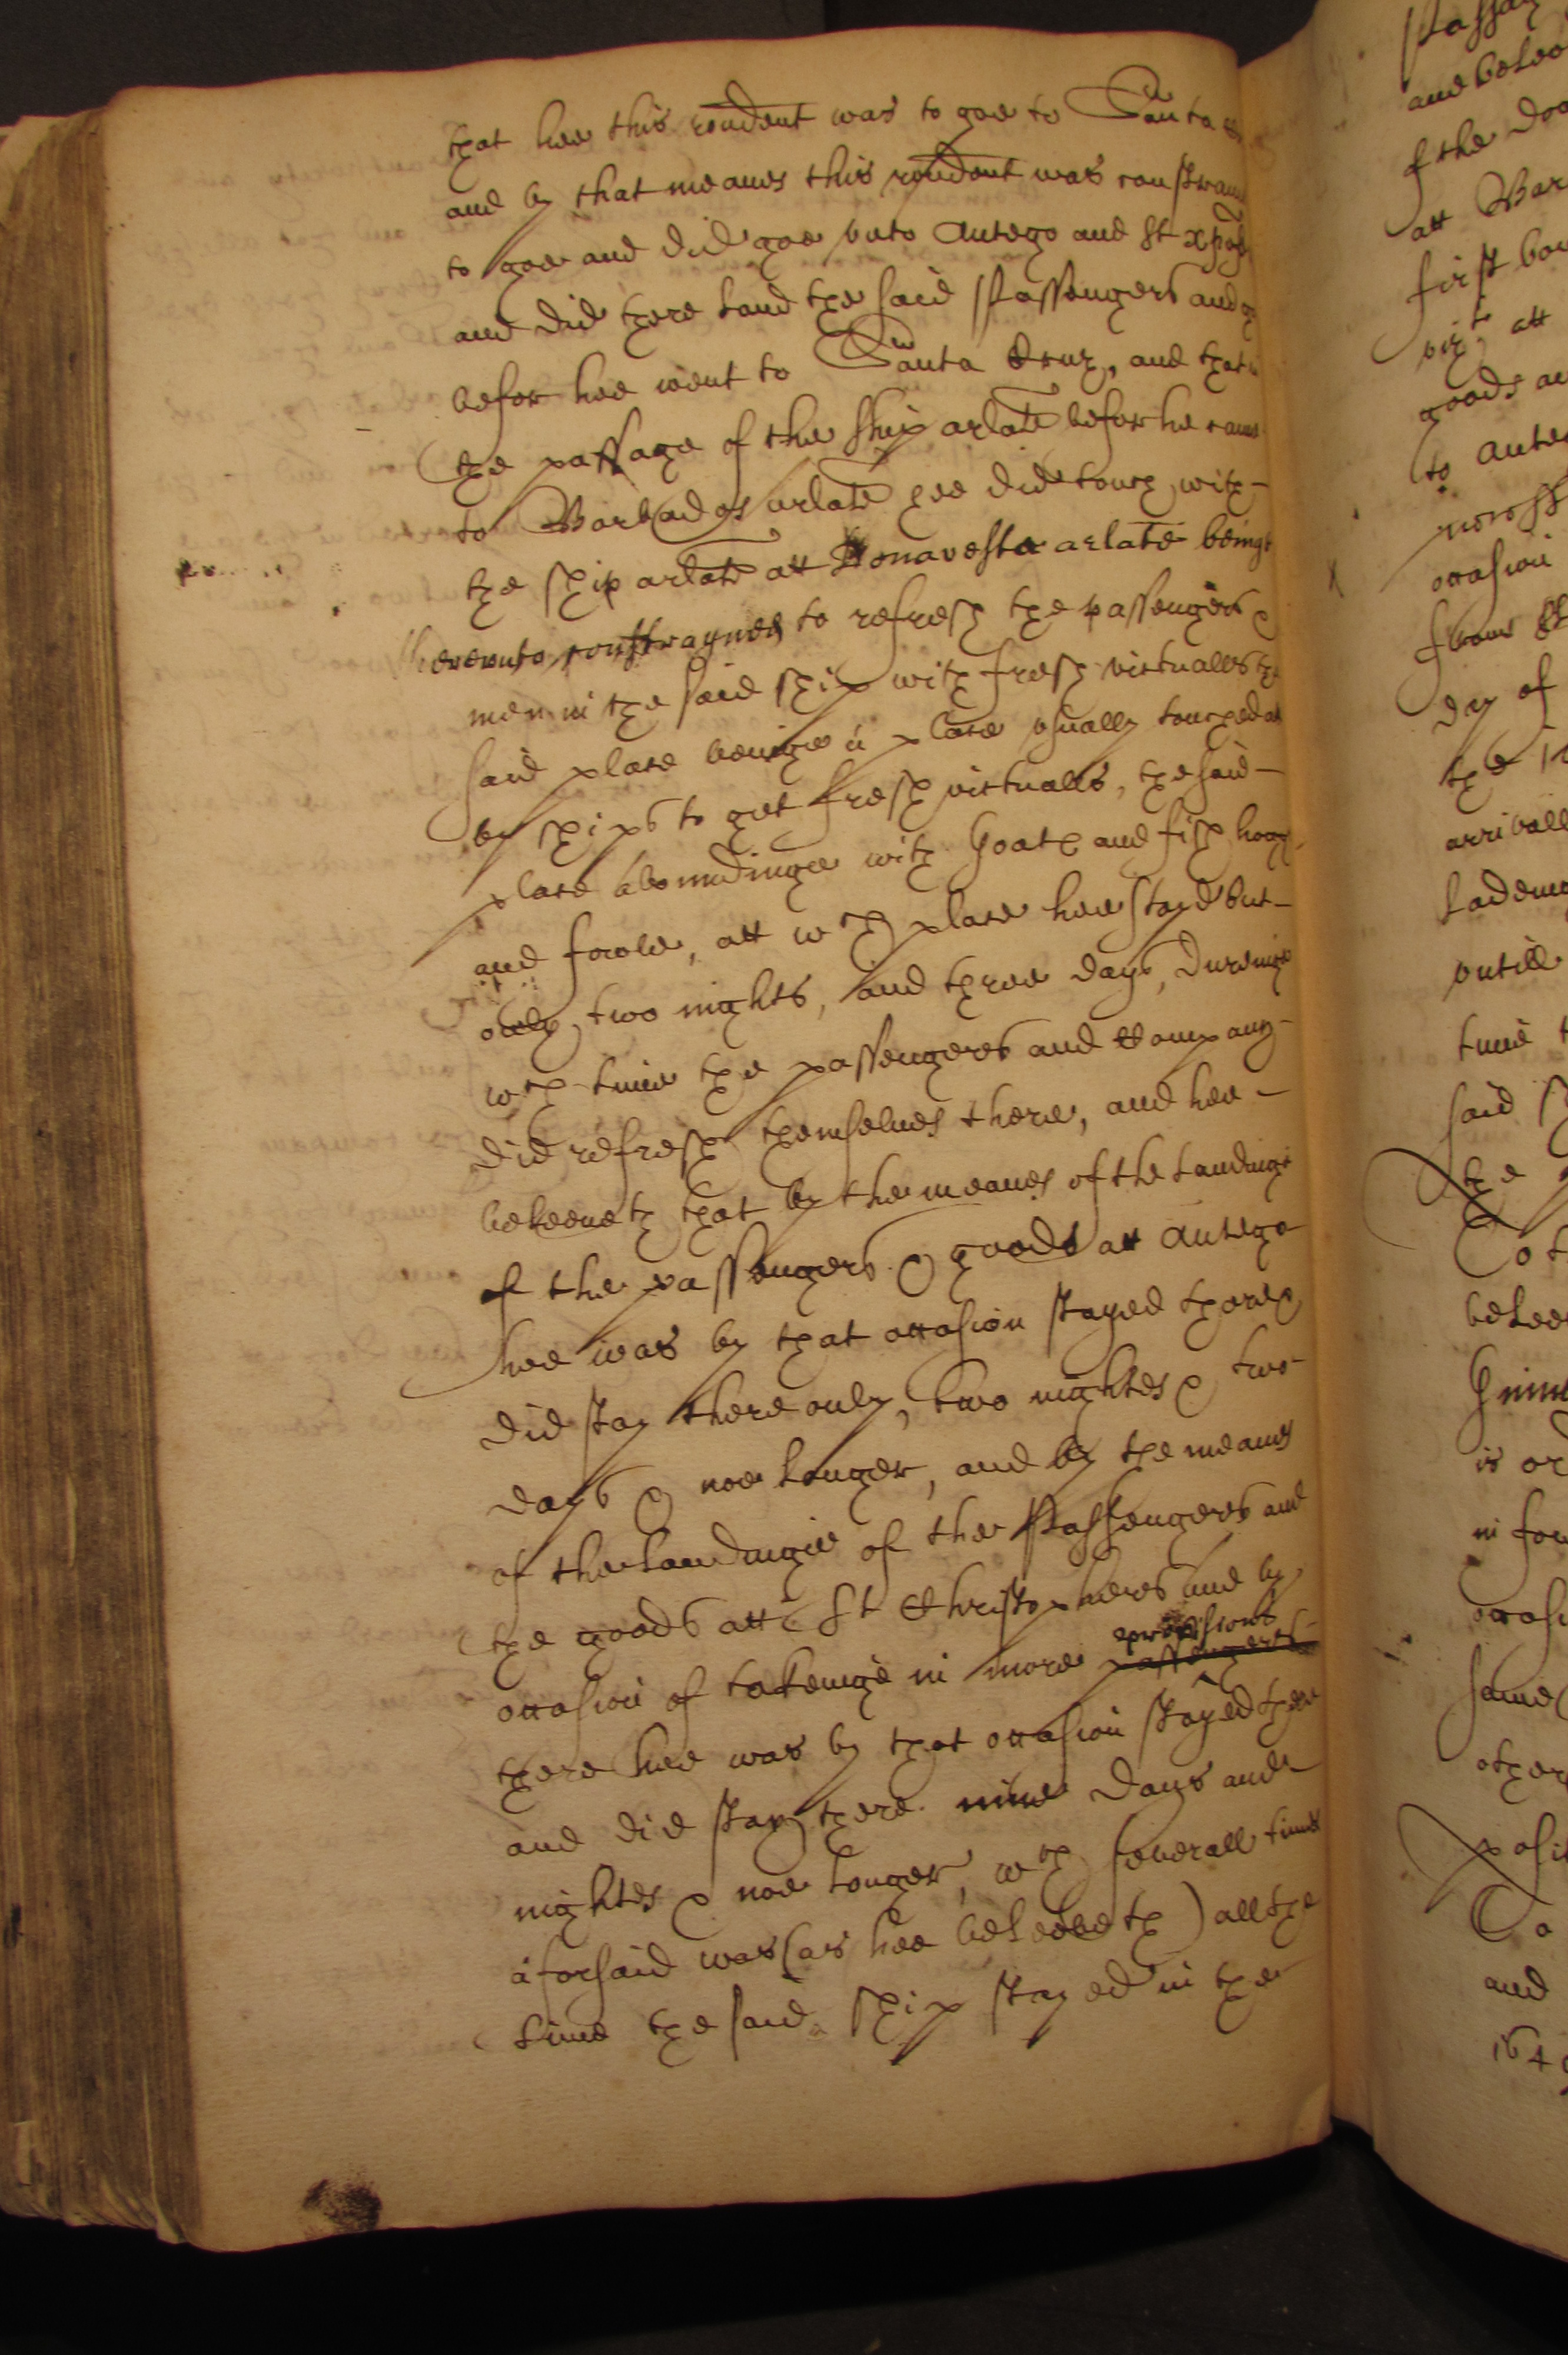 that hee this rondent was to goe to Santa
and by that meanes this rondent was constrayn
to goe and did goe vnto Antego and St Xpof
and did there land the said Passengers and
before hee went to Santa Cruz, and that
the passage of the shipp arlate before he came
to Barbados arlate hee did touch with
the ship arlate att Bonavesta arlate being
therevnto constrayned to refresh the passengers &
men in the said ship with fresh victualls the
said place beinge a place vsually touched at
by ships to get fresh victualls, the said
place aboundinge with Goats and fish hoggs
and fowle, att wch place hee stayd but
only two nights, and three days, dureinge
wch time the passengers and Company
did refresh themselues there, and hee
beleeueth that by the meanes of the Landinge
of the passengers & goods att Antego
hee was by that occasion stayed there &
did stay there only two nightes & two
days & noe longer, and by the meanes
of the Landinge of the Passengers and
the goods att St Christophers and by
occasion of takeinge in more passengers provisions
there hee was by that occasion stayed there
and did stay there nine days and
nightes & noe longer, wch seuerall times
aforsaid was (as hee beleeveth) all the
time the said ship stayed in the
Passa
and belee
f the
att Bar
first
vizt att
goods an
to Ante
necess
occasion
from
day of
the
arrivall
Ladeing
vntill
time
said
the
beleev
is or
in for
occasi
same
other
posit
and
164